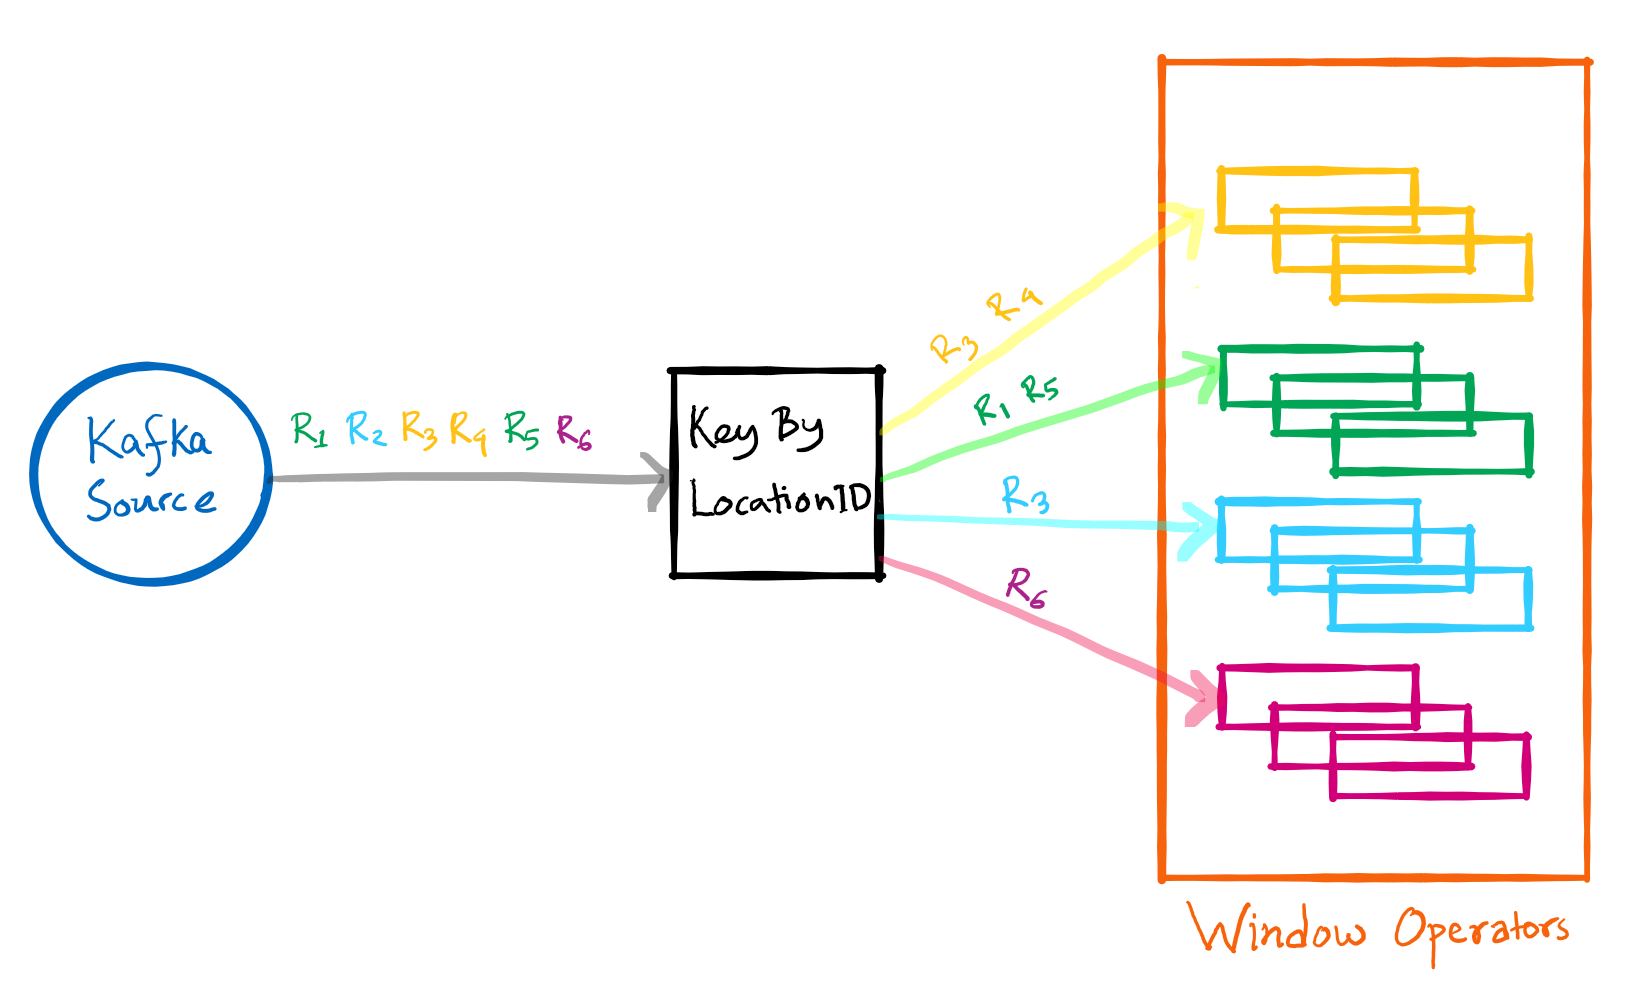 Kafka
Source
R1 R2 R3 R4 R5 R6
Key By
LocationID
R3 R4
R1 R5
R3
R6
Window Operators